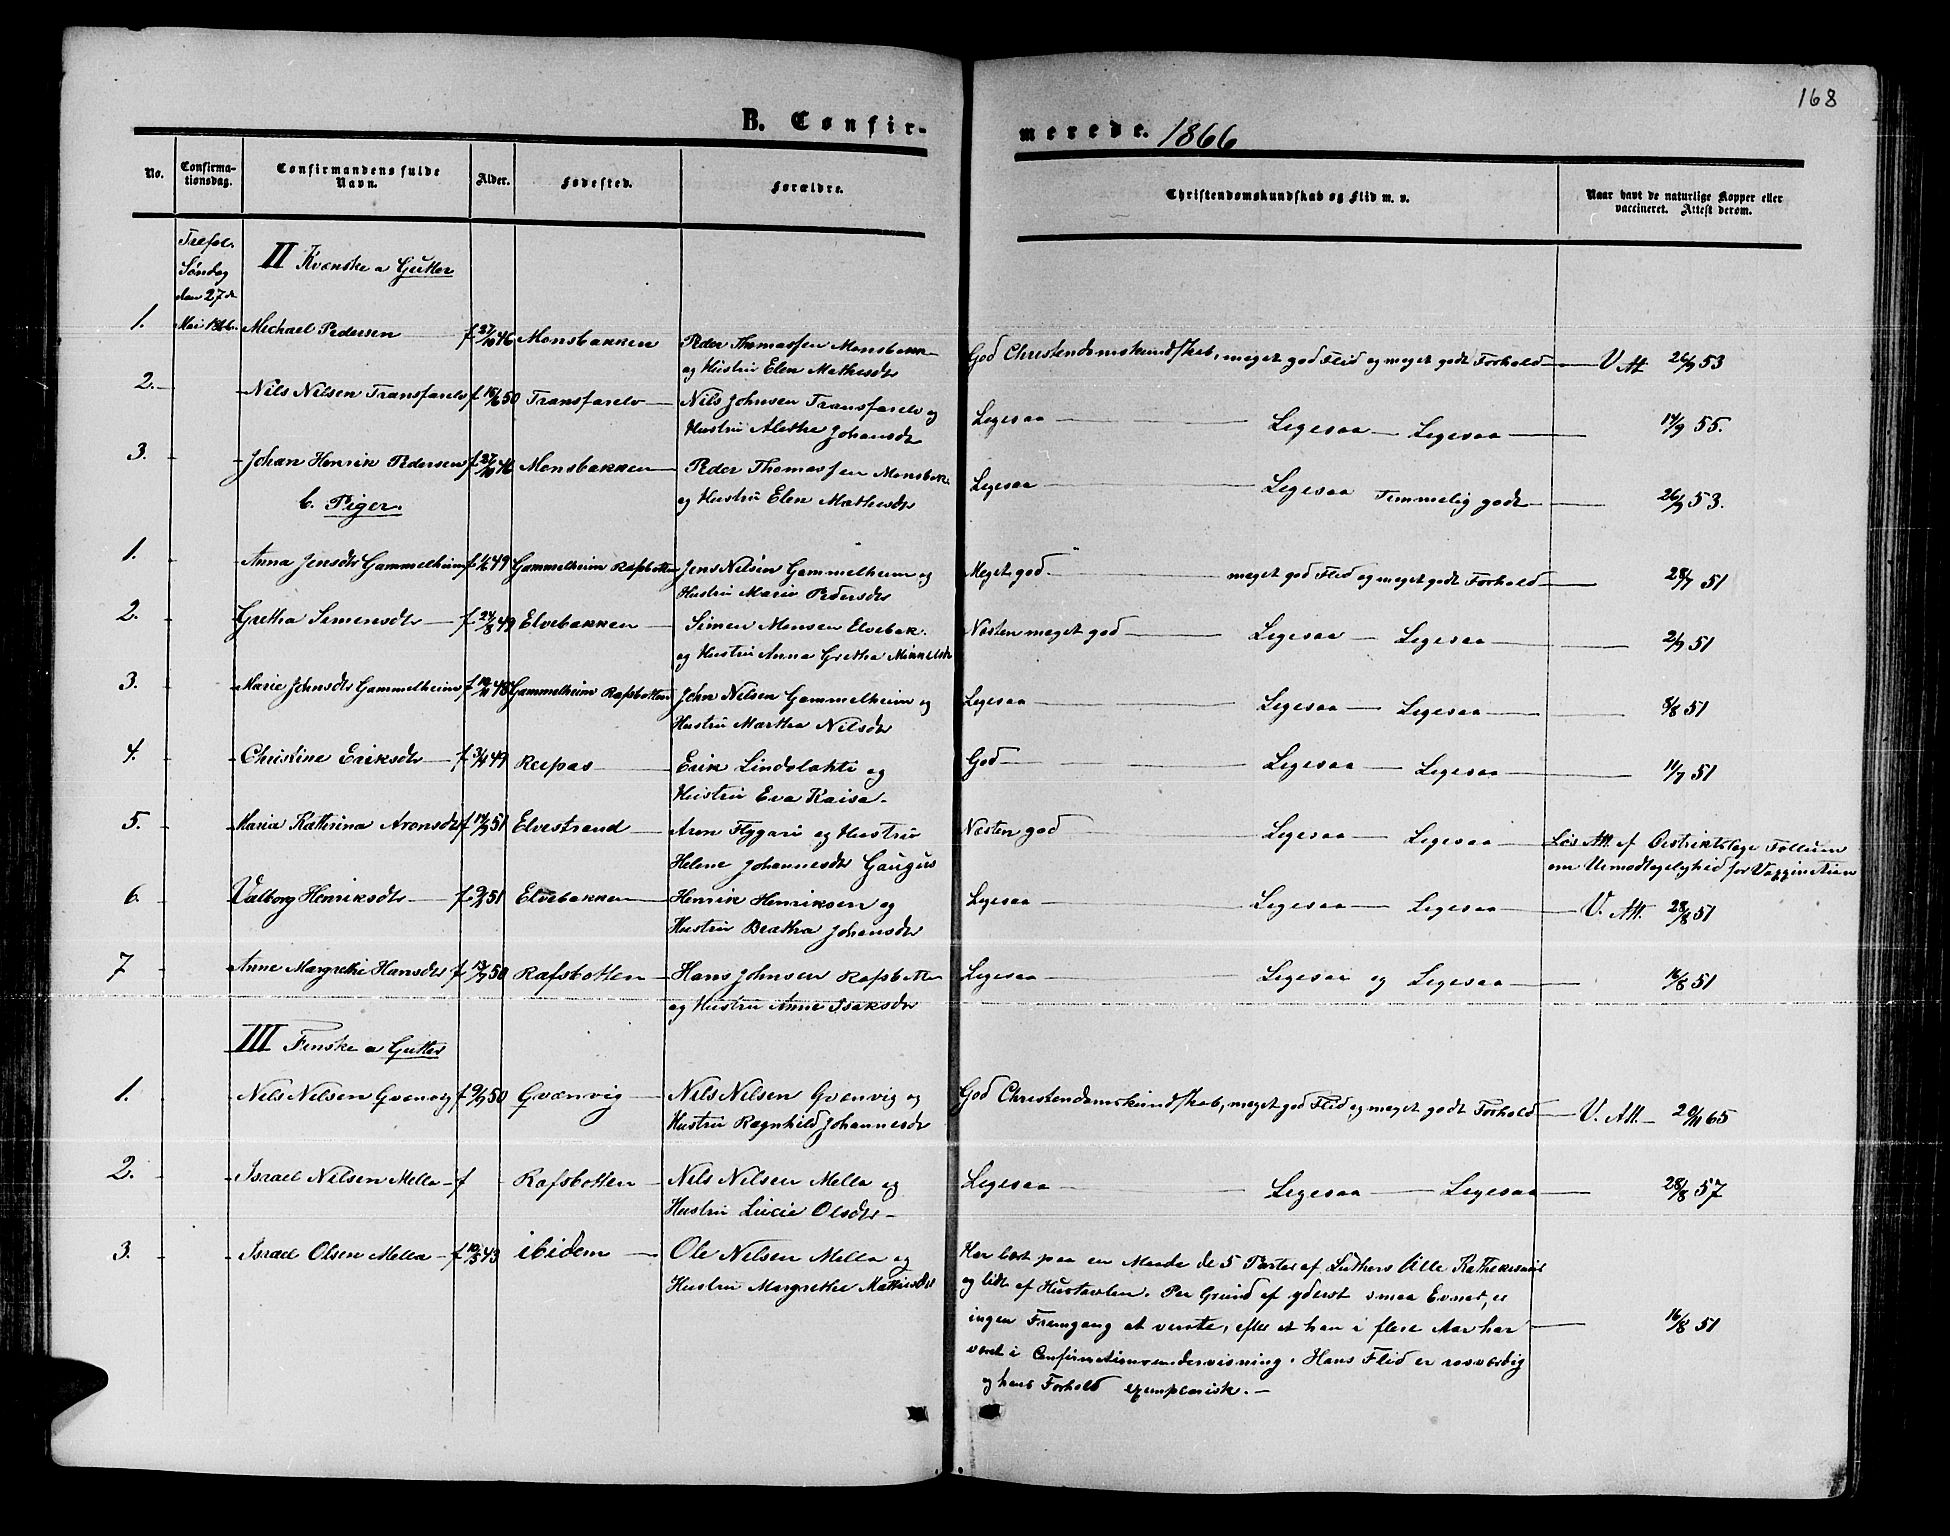 168
B. Confirmerede. 1866
No.
Confirma-
tionsdag.
Confirmandens fulde
Navn.
Alder.
Fødested.
Forældre.
Christendomskundskab og Flid m. v.
Naar havt de naturlige Kopper eller
vaccineret. Attest derom.
Trefol.
Søndag
den 27de
Mai 1866.
II Kvænske a Gutter
1. Michael Pedersen f 27/10 46 Monsbakken Peder Thomassen Monsbakk God Christendomskundskab, meget god Flid og meget godt Forhold V. Att. 26/9 53
og Hustru Elen Mathisdtr
2. Nils Nilsen Transfarelv f 15/6 50 Transfarelv Nils Johnsen Transfarelv og Ligesaa Ligesaa Ligesaa 17/9 55.
Hustru Alethe Johansdtr
3. Johan Henrik Pedersen f 27/10 46 Monsbakken Peder Thomassen Monsbak. Ligesaa Ligesaa Temmelig godt 26/9 53.
og Hustru Elen Mathisdtr
b. Piger.
1. Anna Jensdtr Gammelheim f 1/6 49 Gammelheim Rafsbotten Jens Nilsen Gammelheim og Meget god meget god Flid og meget godt Forhold 28/7 51
Hustru Marie Pedersdtr
2. Gretha Simensdtr f 24/8 49 Elvebakken Simen Monsen Elvebak. Næsten meget god Ligesaa Ligesaa 2/9 51
og Hustru Anna Gretha Mikkelsdtr
3. Marie Johnsdtr Gammelheim f 10/11 48 Gammelheim Rafsbotten John Nilsen Gammelheim og Ligesaa Ligesaa Ligesaa 8/8 51
Hustru Martha Nilsdtr
4. Christine Eriksdtr f 3/4 49 Reipas Erik Lindolahti og God Ligesaa Ligesaa 11/7 51
Hustru Eva Kaisa
5. Maria Kathrina Aronsdtr f 14/9 51 Elvestrand Aron Flygari og Hustru Næsten god Ligesaa Ligesaa Løs Att. af Distriktslæge Follum
Helene Johannesdtr Gaugus om Uimodtagelighed for Vaccination
6. Valborg Henriksdtr f 51 Elvebakken Henrik Henriksen og Ligesaa Ligesaa Ligesaa V. Att. 28/8 51
Hustru Beatha Johansdtr
7 Anne Margrethe Hansdtr f 50 Rafsbotten Hans Johnsen Rafsbotten Ligesaa Ligesaa og Ligesaa 16/8 51
og Hustru Anne Isaksdtr
III Finske a Gutter
1. Nils Nilsen Qvænvig f 9/9 50 Qvænvig Nils Nilsen Qvænvig og God Christendomskundskab, meget god Flid og meget godt Forhold V. Att. 20/11 65
Hustru Ragnhild Johannesdtr
2. Israel Nilsen Mella f Rafsbotten Nils Nilsen Mella og Ligesaa Ligesaa Ligesaa 28/8 57
Hustru Lucie Olsdtr
3. Israel Olsen Mella f 10/3 43 ibidem Ole Nilsen Mella og Har lært paa en Maade de 5 Parter af Luthers lille Kathekismus
Hustru Margrethe Mathisdtr og lidt af Hustavlen. Paa Grund af yderst smaa Evner, er
ingen Fremgang at vente, efter at han i flere Aar har 16/8 51
været i Confirmationsundervisning. Hans Flid er rosværdig
og hans Forhold exemplarisk.